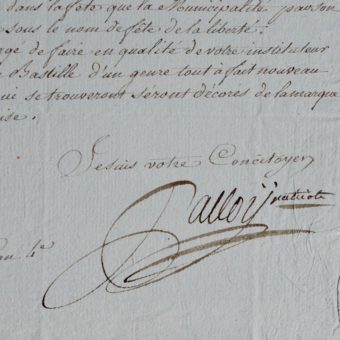 dans la fête que la Municipalité
sous le nom de fête de la liberté.
de faire en qualité de votre instituteur
Bastille d'un genre tout à fait nouveau
se trouveront seront décorés de la marque
Je suis votre Concitoyen
Palloy patriote
an 4e